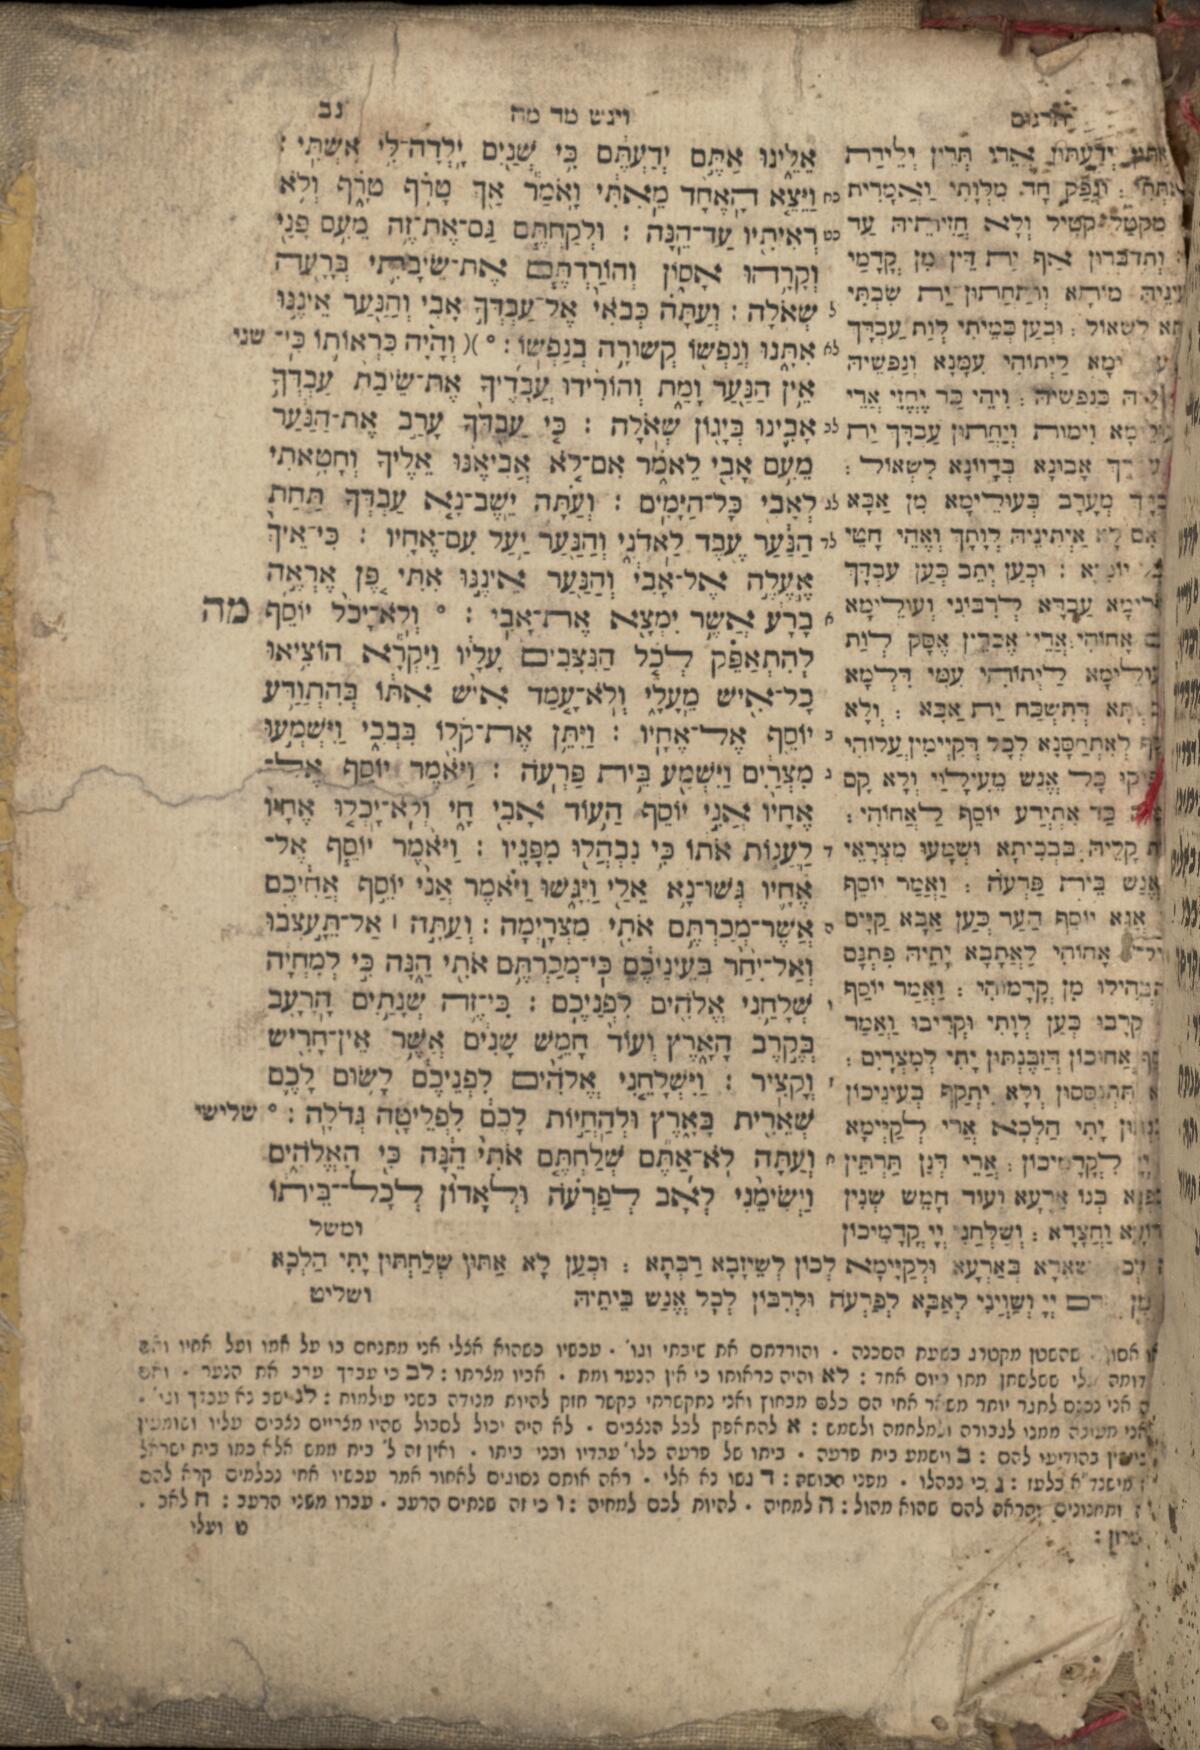 תרגום
ויגש מד מה
נב
אֵלֵינוּ אַתֶּם יְדַעְתֶּם כִּי שְׁנַיִם יָלְדָה־לִּי אִשְׁתִּי :
כח וַיֵּצֵא הָאֶחָד מֵאִתִּי וָאֹמַר אַךְ טָרֹף טֹרָף וְלֹא
כט רְאִיתִיו עַד־הֵנָּה : וּלְקַחְתֶּם גַּם־אֶת־זֶה מֵעִם פָּנַי
וְקָרָהוּ אָסוֹן וְהוֹרַדְתֶּם אֶת־שֵׂיבָתִי בְּרָעָה
ל שְׁאֹלָה : וְעַתָּה כְּבֹאִי אֶל־עַבְדְּךָ אָבִי וְהַנַּעַר אֵינֶנּוּ
לא אִתָּנוּ וְנַפְשׁוֹ קְשׁוּרָה בְנַפְשׁוֹ : ° )( וְהָיָה כִּרְאוֹתוֹ כִּי־ שני
אֵין הַנַּעַר וָמֵת וְהוֹרִידוּ עֲבָדֶיךָ אֶת־שֵׂיבַת עַבְדְּךָ
לב אָבִינוּ בְּיָגוֹן שְׁאֹלָה : כִּי עַבְדְּךָ עָרַב אֶת־הַנַּעַר
מֵעִם אָבִי לֵאמֹר אִם־לֹא אֲבִיאֶנּוּ אֵלֶיךָ וְחָטָאתִי
לג לְאָבִי כָּל־הַיָּמִים : וְעַתָּה יֵשֶׁב־נָא עַבְדְּךָ תַּחַת
לד הַנַּעַר עֶבֶד לַאדֹנִי וְהַנַּעַר יַעַל עִם־אֶחָיו : כִּי־אֵיךְ
אֶעֱלֶה אֶל־אָבִי וְהַנַּעַר אֵינֶנּוּ אִתִּי פֶּן אֶרְאֶה
א בָרָע אֲשֶׁר יִמְצָא אֶת־אָבִי : ° וְלֹא־יָכֹל יוֹסֵף מה
לְהִתְאַפֵּק לְכֹל הַנִּצָּבִים עָלָיו וַיִּקְרָא הוֹצִיאוּ
כָל־אִישׁ מֵעָלָי וְלֹא־עָמַד אִישׁ אִתּוֹ בְּהִתְוַדַּע
ב יוֹסֵף אֶל־אֶחָיו : וַיִּתֵּן אֶת־קֹלוֹ בִּבְכִי וַיִּשְׁמְעוּ
ג מִצְרַיִם וַיִּשְׁמַע בֵּית פַּרְעֹה : וַיֹּאמֶר יוֹסֵף אֶל־
אֶחָיו אֲנִי יוֹסֵף הַעוֹד אָבִי חָי וְלֹא־יָכְלוּ אֶחָיו
ד לַעֲנוֹת אֹתוֹ כִּי נִבְהֲלוּ מִפָּנָיו : וַיֹּאמֶר יוֹסֵף אֶל־
אֶחָיו גְּשׁוּ־נָא אֵלַי וַיִּגָּשׁוּ וַיֹּאמֶר אֲנִי יוֹסֵף אֲחִיכֶם
ה אֲשֶׁר־מְכַרְתֶּם אֹתִי מִצְרָיְמָה : וְעַתָּה ׀ אַל־תֵּעָצְבוּ
וְאַל־יִחַר בְּעֵינֵיכֶם כִּי־מְכַרְתֶּם אֹתִי הֵנָּה כִּי לְמִחְיָה
ו שְׁלָחַנִי אֱלֹהִים לִפְנֵיכֶם : כִּי־זֶה שְׁנָתַיִם הָרָעָב
בְּקֶרֶב הָאָרֶץ וְעוֹד חָמֵשׁ שָׁנִים אֲשֶׁר אֵין־חָרִישׁ
ז וְקָצִיר : וַיִּשְׁלָחֵנִי אֱלֹהִים לִפְנֵיכֶם לָשׂוּם לָכֶם
שְׁאֵרִית בָּאָרֶץ וּלְהַחֲיוֹת לָכֶם לִפְלֵיטָה גְּדֹלָה : ° שלישי
ח וְעַתָּה לֹא־אַתֶּם שְׁלַחְתֶּם אֹתִי הֵנָּה כִּי הָאֱלֹהִים
וַיְשִׂימֵנִי לְאָב לְפַרְעֹה וּלְאָדוֹן לְכָל־בֵּיתוֹ
ומשל
יְדַעְתּוּן אֲרֵי תְּרֵין יְלֵידַת
וּנְפַק חַד מִלְּוָתִי וַאֲמָרִית
מִקְטַל קְטִיל וְלָא חֲזֵיתֵיהּ עַד
וְתִדְבְּרוּן אַף יַת דֵּין מִן קֳדָמַי
מוֹתָא וְתַחֲתוּן יַת שֵׂבְתִי
לִשְׁאוֹל : וּכְעַן כְּמֵיתִי לְוָת עַבְדָּךְ
לֵיתוֹהִי עִמָּנָא וְנַפְשֵׁיהּ
כְּנַפְשֵׁיהּ : וִיהֵי כַּד יֶחֱזֵי אֲרֵי
וִימוּת וְיַחֲתוּן עַבְדָּךְ יַת
אֲבוּנָא בְּדָווֹנָא לִשְׁאוֹל :
מְעָרַב בְּעוּלֵימָא מִן אַבָּא
אִם לָא אַיְתִינֵיהּ לְוָתָךְ וְאֱהֵי חָטֵי
וּכְעַן יְתֵב כְּעַן עַבְדָּךְ
עַבְדָּא לְרִבּוֹנִי וְעוּלֵימָא
אֲחוֹהִי : אֲרֵי אֶכְדֵין אֶסַּק לְוָת
לֵיתוֹהִי עִמִּי דִּלְמָא
דְּתִשְׁכַּח יַת אַבָּא : וְלָא
לְאִתְחַסָּנָא לְכָל דְּקַיְימִין עֲלוֹהִי
כָּל אֱנַשׁ מֵעִילָוַי וְלָא קָם
כַּד אִתְיְדַע יוֹסֵף לַאֲחוֹהִי :
קָלֵיהּ בִּבְכִיתָא וּשְׁמָעוּ מִצְרָאֵי
אֱנַשׁ בֵּית פַּרְעֹה : וַאֲמַר יוֹסֵף
אֲנָא יוֹסֵף הַעַד כְּעַן אַבָּא קַיָּים
אֲחוֹהִי לַאֲתָבָא יָתֵיהּ פִּתְגָּם
מִן קֳדָמוֹהִי : וַאֲמַר יוֹסֵף
קְרִבוּ כְּעַן לְוָתִי וּקְרִיבוּ וַאֲמַר
אֲחוּכוֹן דְּזַבֵּנְתּוּן יָתִי לְמִצְרָיִם :
וְלָא יִתְקֵף בְּעֵינֵיכוֹן
יָתִי הַלְכָא אֲרֵי לְקַיָּימָא
לְקָדָמֵיכוֹן : אֲרֵי דְּנַן תַּרְתֵּין
בְּגוֹ אַרְעָא וְעוֹד חָמֵשׁ שְׁנִין
וַחֲצָדָא : וְשַׁלְּחַנִי יְיָ קֳדָמֵיכוֹן
שְׁאָרָא בְּאַרְעָא וּלְקַיָּימָא לְכוֹן לְשֵׁיזָבָא רַבְּתָא : וּכְעַן לָא אַתּוּן שְׁלַחְתּוּן יָתִי הַלְכָא
יְיָ וְשַׁוְיַנִי לְאַבָּא לְפַרְעֹה וּלְרִבּוֹן לְכָל אֱנַשׁ בֵּיתֵיהּ
ושליט
אסון . שהשטן מקטרג בשעת הסכנה . והורדתם את שיבתי וגו' . עכשיו כשהוא אצלי אני מתנחם בו על אמו ועל אחיו
דומה עלי ששלשתן מתו ביום אחד : לא והיה כראותו כי אין הנער ומת . אביו מצרתו : לב כי עבדך ערב את הנער .
אני נכנס לתגר יותר משאר אחי הם כלם מבחוץ ואני נתקשרתי בקשר חזק להיות מנודה בשני עולמות : לג ישב נא עבדך וגו' .
ממנו לגבורה ולמלחמה ולשמש : א להתאפק לכל הנצבים . לא היה יכול לסבול שהיו מצריים נצבים עליו ושומעין
בהודיעו להם : ב וישמע בית פרעה . ביתו של פרעה כלו' עבדיו ובני ביתו . ואין זה ל' בית ממש אלא כמו בית ישראל
בלעז : ג כי נבהלו . מפני הבושה : ד גשו נא אלי . ראה אותם נסוגים לאחור אמר עכשיו אחי נכלמים קרא להם
ותחנונים והראה להם שהוא מהול : ה למחיה . להיות לכם למחיה : ו כי זה שנתים הרעב . עברו משני הרעב : ח לאב .
ט ועלי